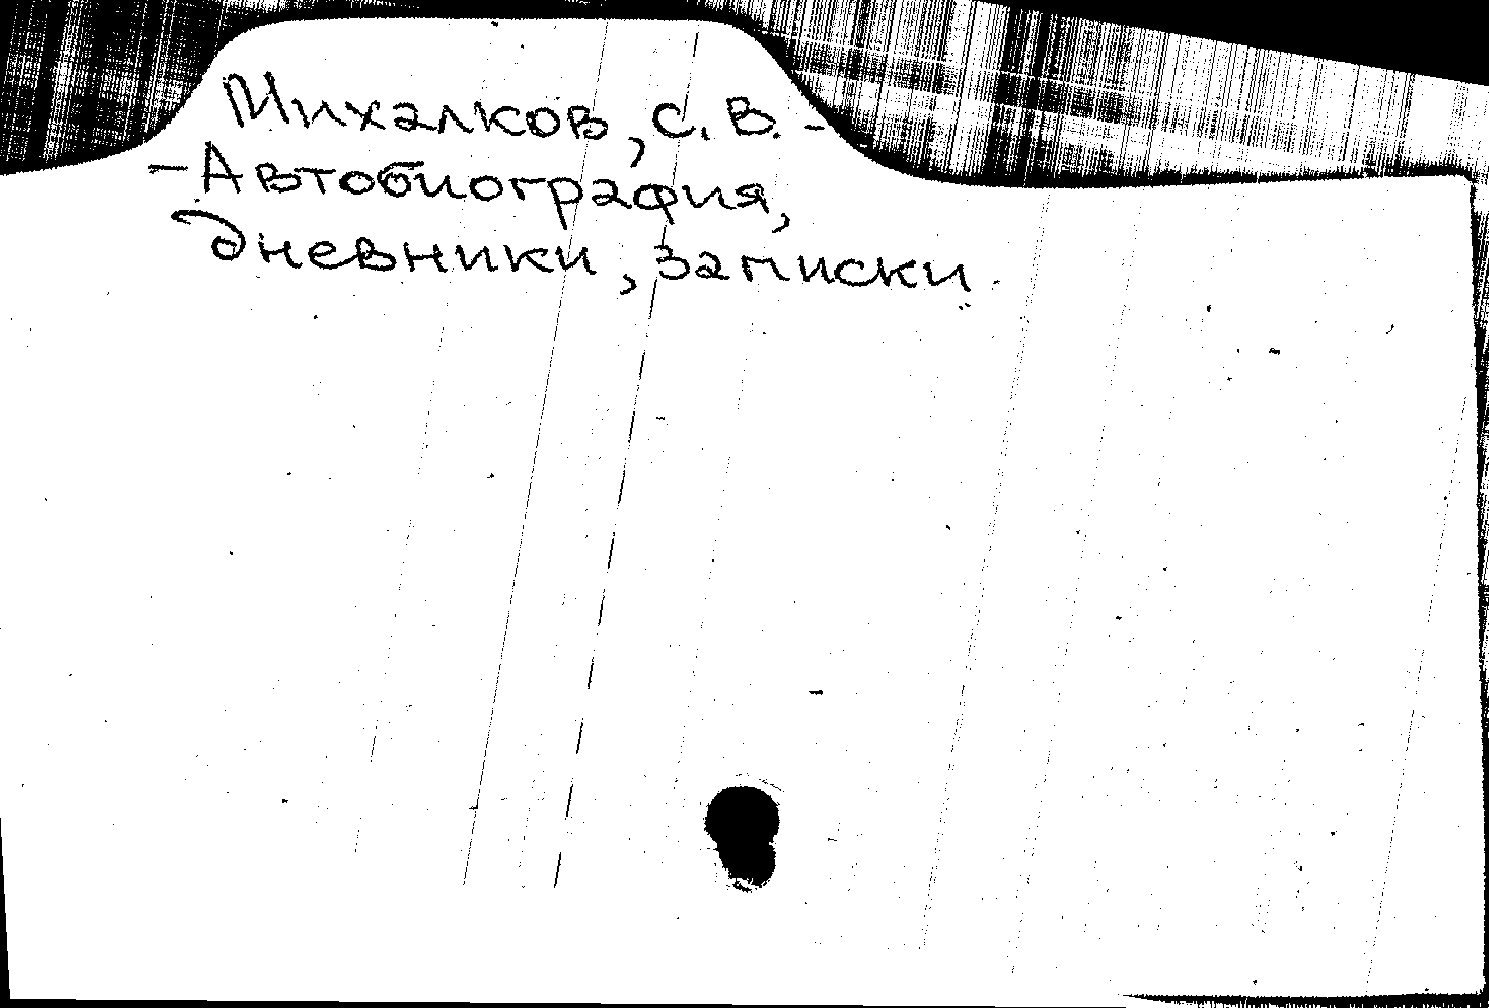 Михалков, С. В. -
- Автобиография,
дневники, записки